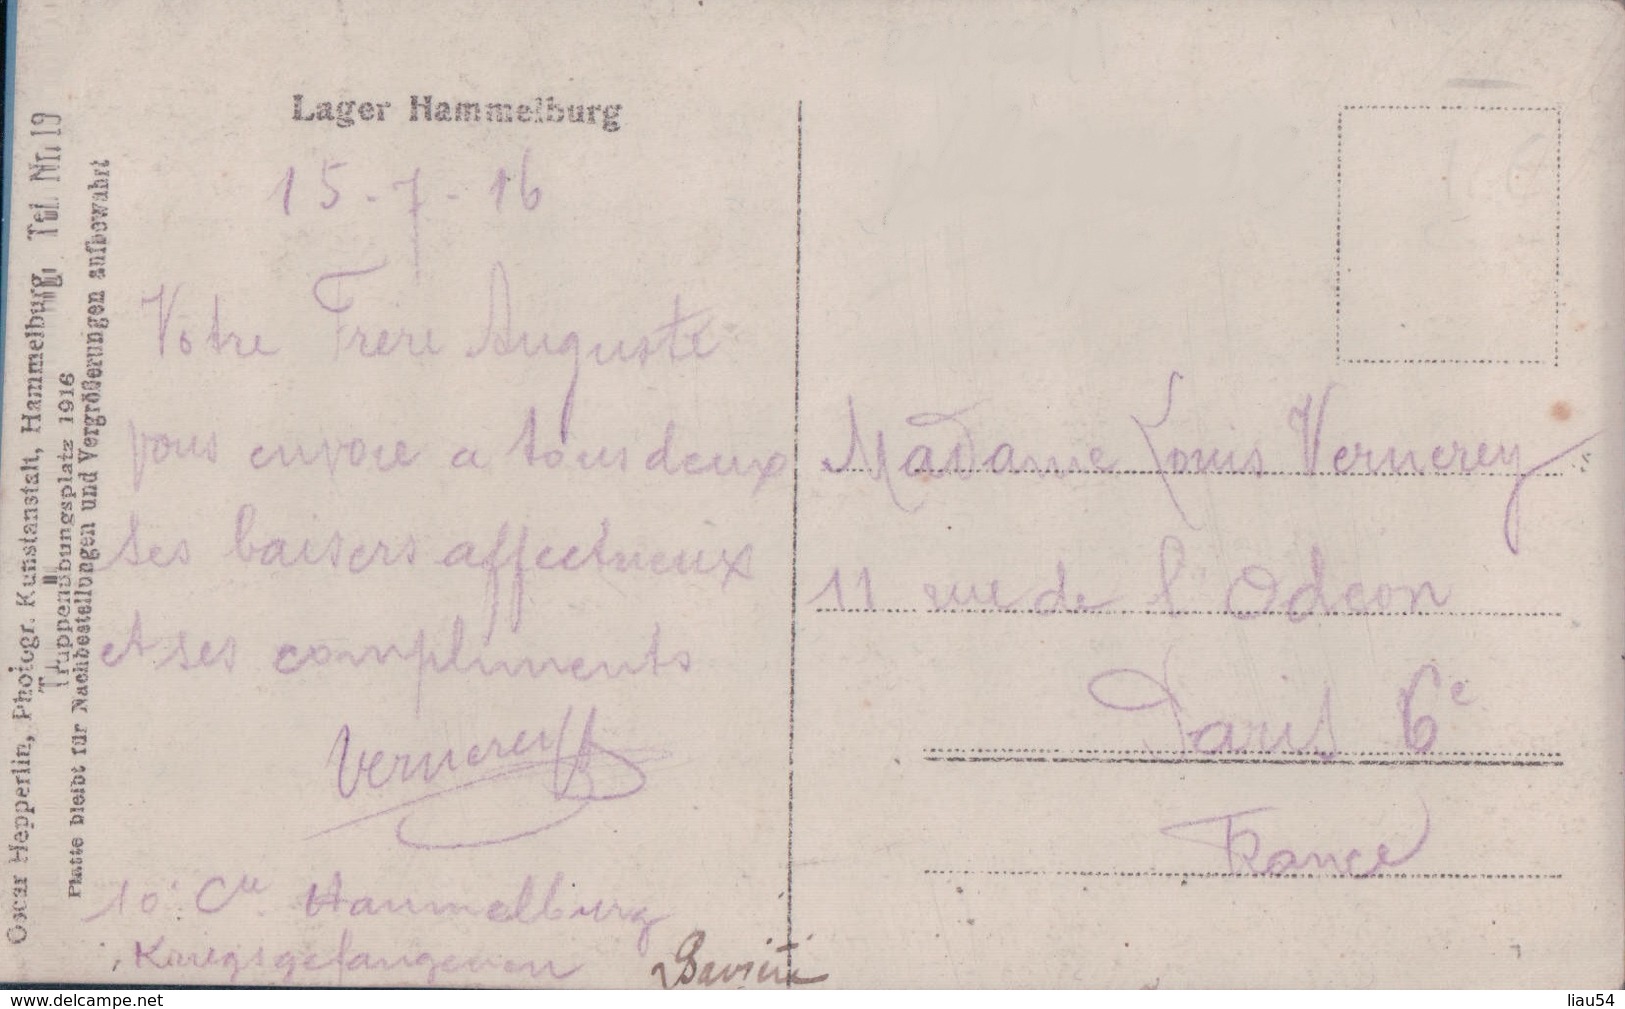 Oscar Hepperlin, Photogr. Kunstanstalt, Hammelburg Tel. Nr. 19
Truppenübungsplatz 1916
Platte bleibt für Nachbestellungen und Vergrößerungen aufbewahrt
Lager Hammelburg
15-7-16
Votre Frère Auguste
vous envoie a tous deux
ses baisers affectueux
et ses compliments
Vernerey
10e Cie Hammelburg
Kriegsgefangenen
Bavière
Madame Louis Vernerey
11 rue de l'Odeon
Paris 6e
France
www.delcampe.net
liau54